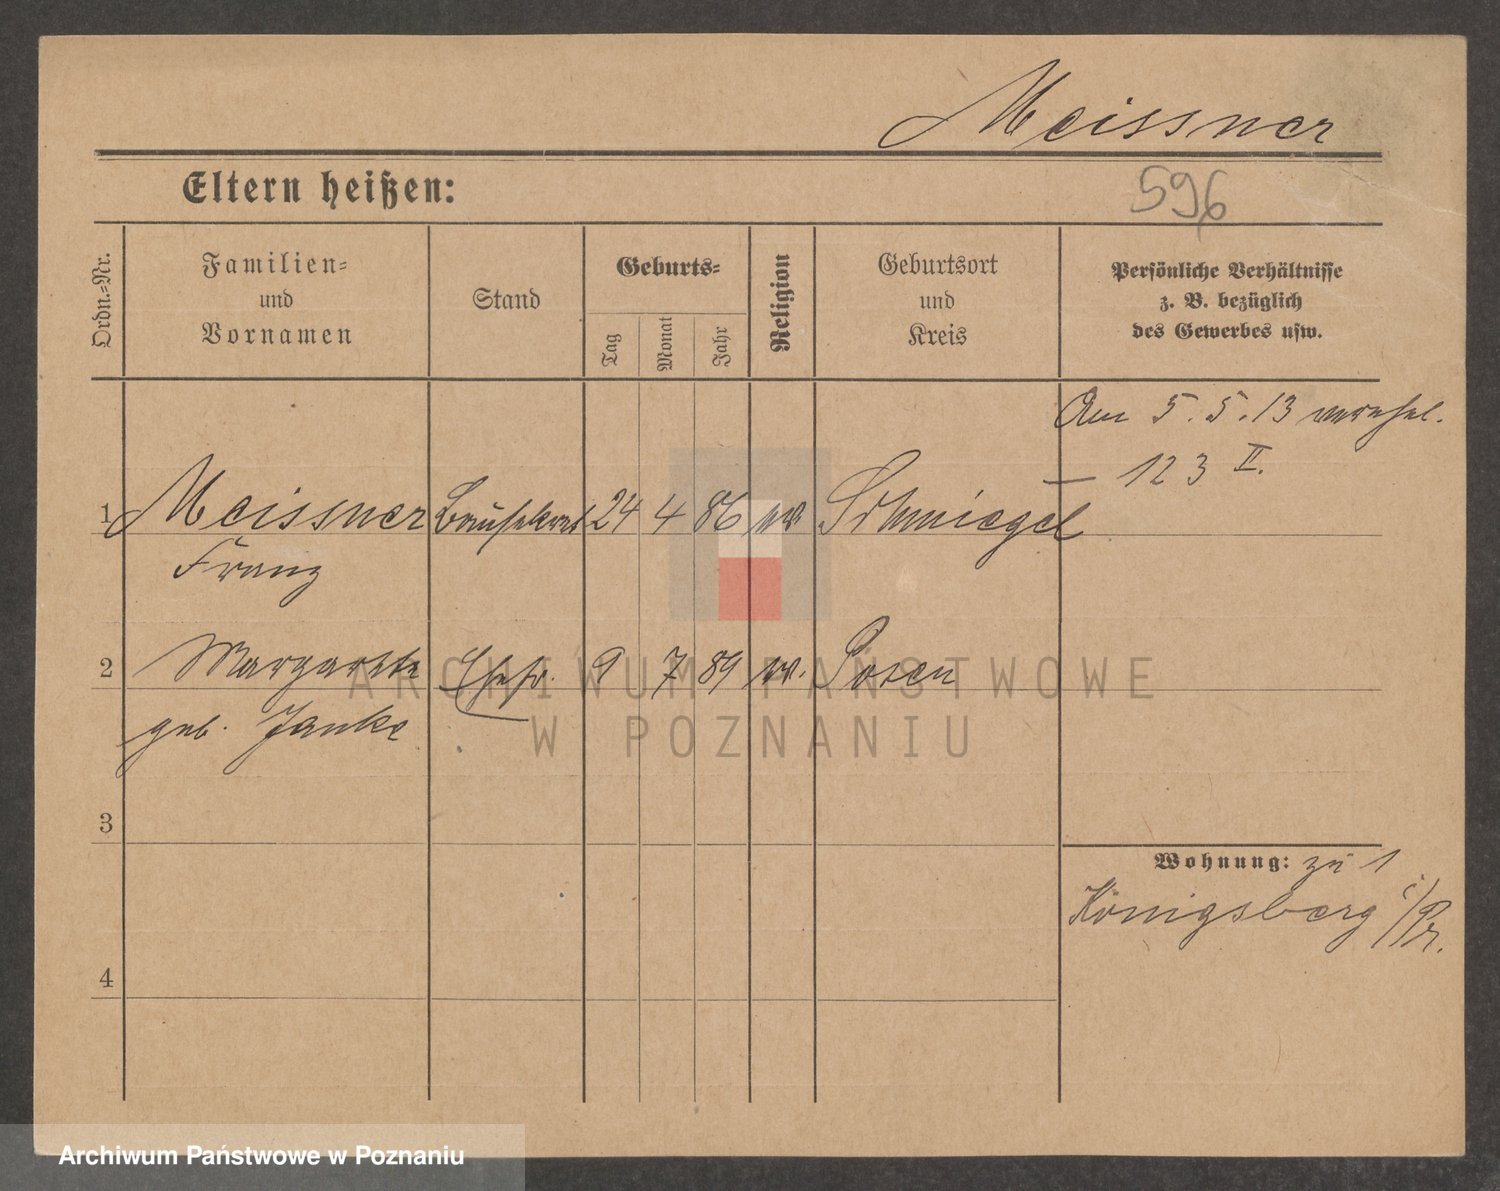 Meissner
Eltern heißen:
596
Ordn.=Nr.
Familien=
und
Vornamen
Stand
Geburts=
Tag
Monat
Jahr
Religion
Geburtsort
und
Kreis
Persönliche Verhältnisse
z. B. bezüglich
des Gewerbes usw.
Am 5.5.13 verehel.
— 123 II.
1 Meissner 24 4 86 Schmiegel
Franz
2 Margarete Ehefr. 9 7 89 Posen
geb. Janke
3
Wohnung: zu 1
Königsberg i/Pr.
4
ARCHIWUM PAŃSTWOWE
W POZNANIU
Archiwum Państwowe w Poznaniu